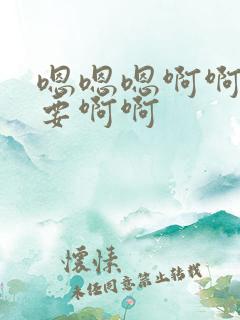 嗯嗯嗯啊啊
要啊啊
懷愫
未经同意禁止转载